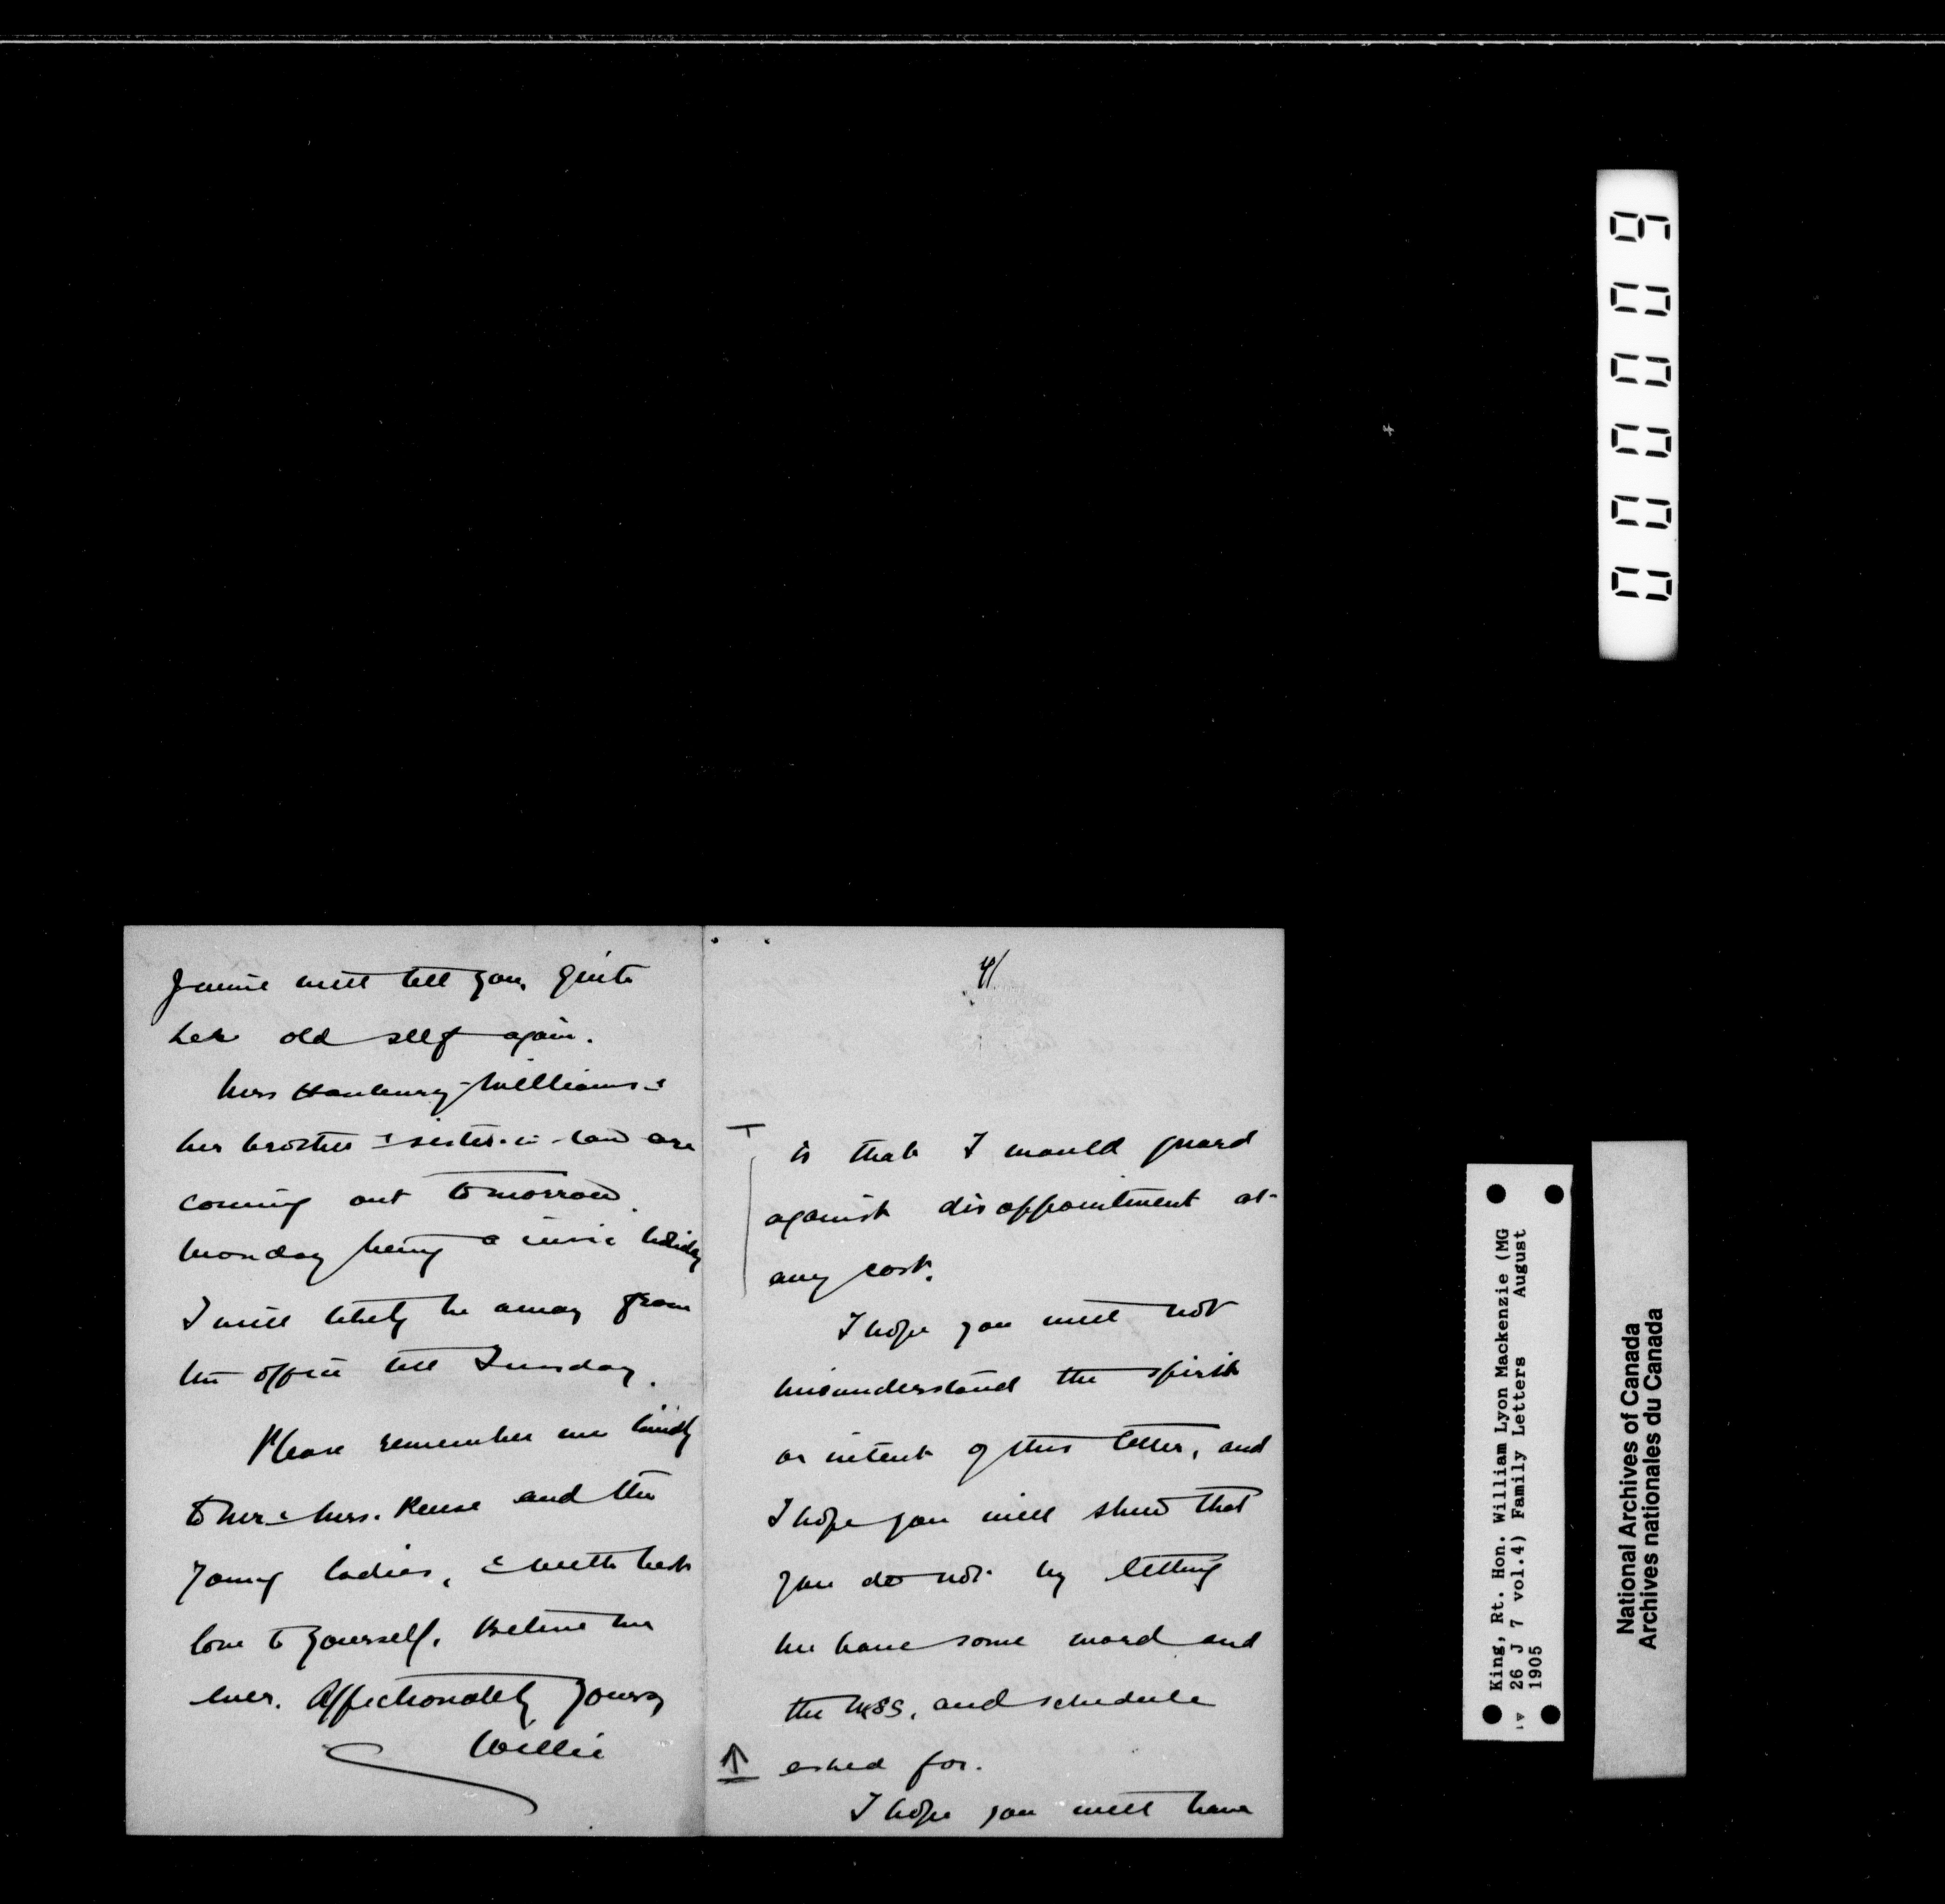 Jennie will tell you, quite
her old self again.
Mrs Hanbury-Williams &
her brother & sister-in-law are
coming out tomorrow.
Monday being a civic holiday
I will likely be away from
the office till Tuesday.
Please remember me kindly
to Mr & Mrs. and the
young ladies, & with best
love to yourself. Believe me
ever. Affectionately yours
Willie
4/
is that I would guard
against disappointment at
any cost.
I hope you will not
misunderstand the spirit
or intent of this letter, and
I hope you will shew that
you do not by letting
me have some word and
the MSS. and schedule
asked for.
I hope you will have
000009
King, Rt. Hon. William Lyon Mackenzie (MG
26 J 7 vol.4) Family Letters August
1905
National Archives of Canada
Archives nationales du Canada